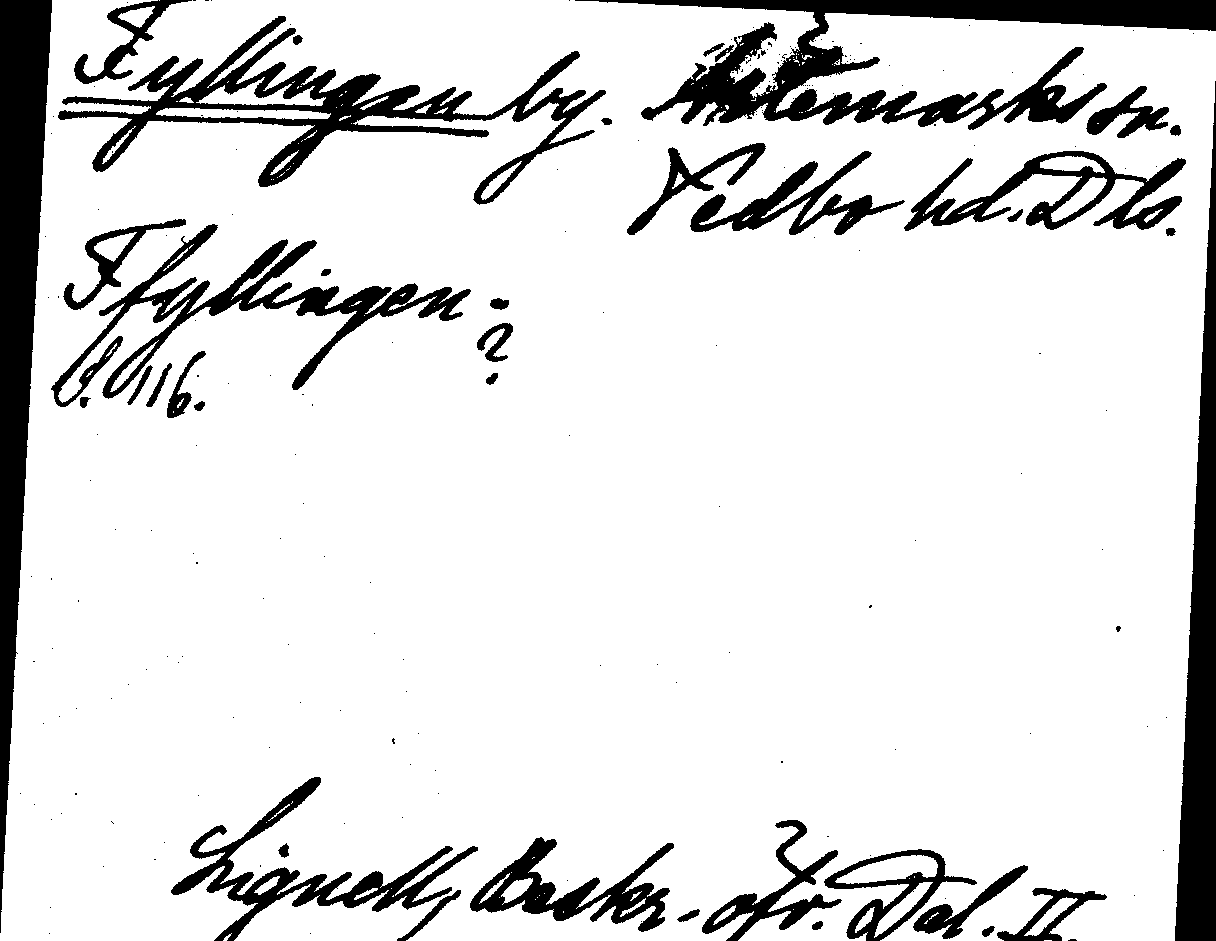 Fyllingen by. Ärtemarks sn.
Vedbo hd. Dls.
Ffyllingen -
?
S. 116.
Lignell, Beskr. öfv. Dal. II.